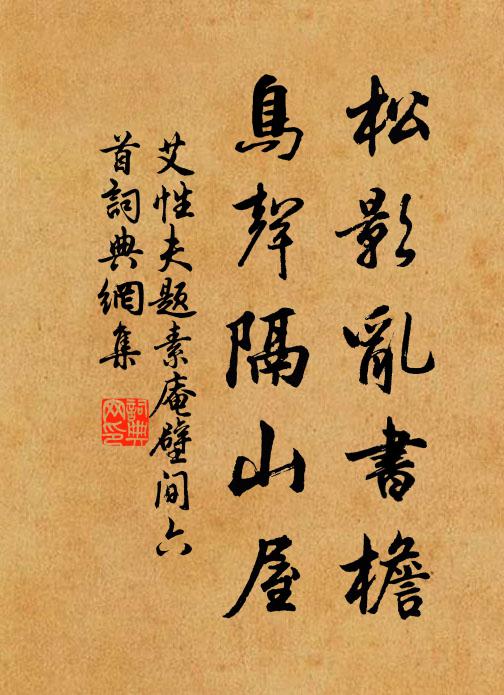 松影亂書檐
鳥聲隔山屋
艾性夫題素庵壁间六
首詞典網集
詞典網印